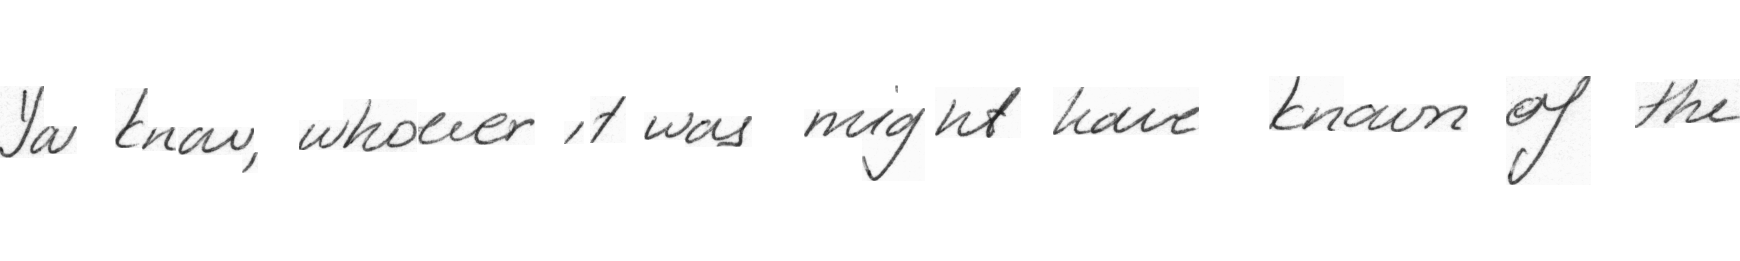 You know, whoever it was might have known of the